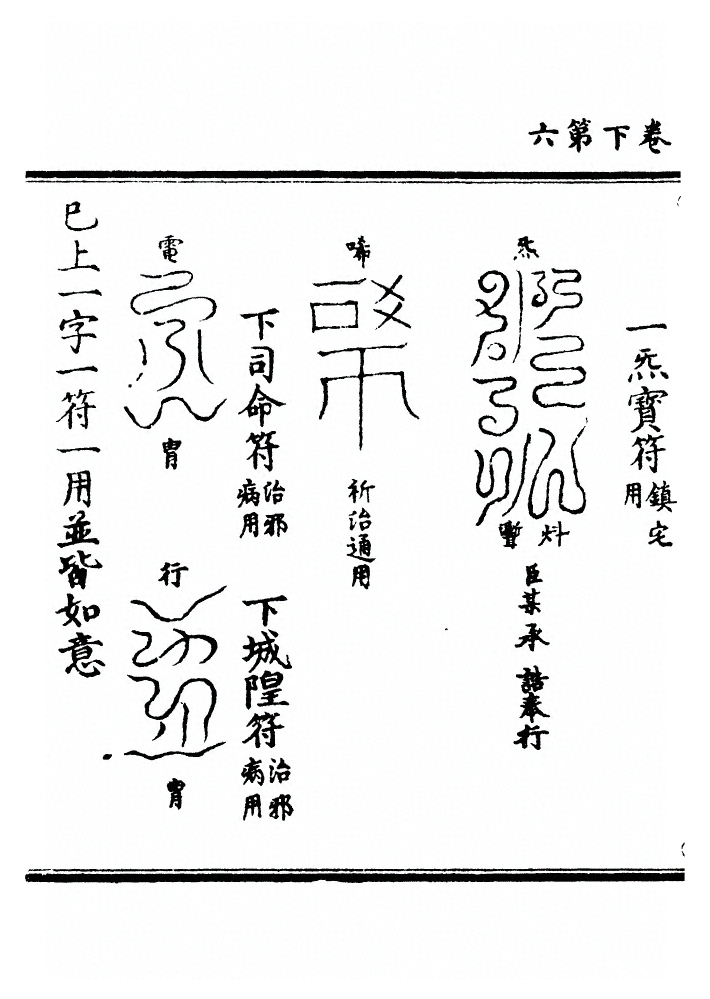 卷下第六
一炁寶符鎮宅用
炁
臣某承誥奉行
唏
祈治通用
下司命符治邪病用
下城隍符治邪病用
電
胃
行
胃
已上一字一符一用並皆如意